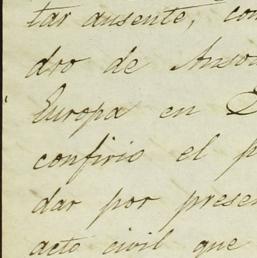 tar ausente, con
dro de Anso
Europa en
confirio el p
dar por presen
acto civil que